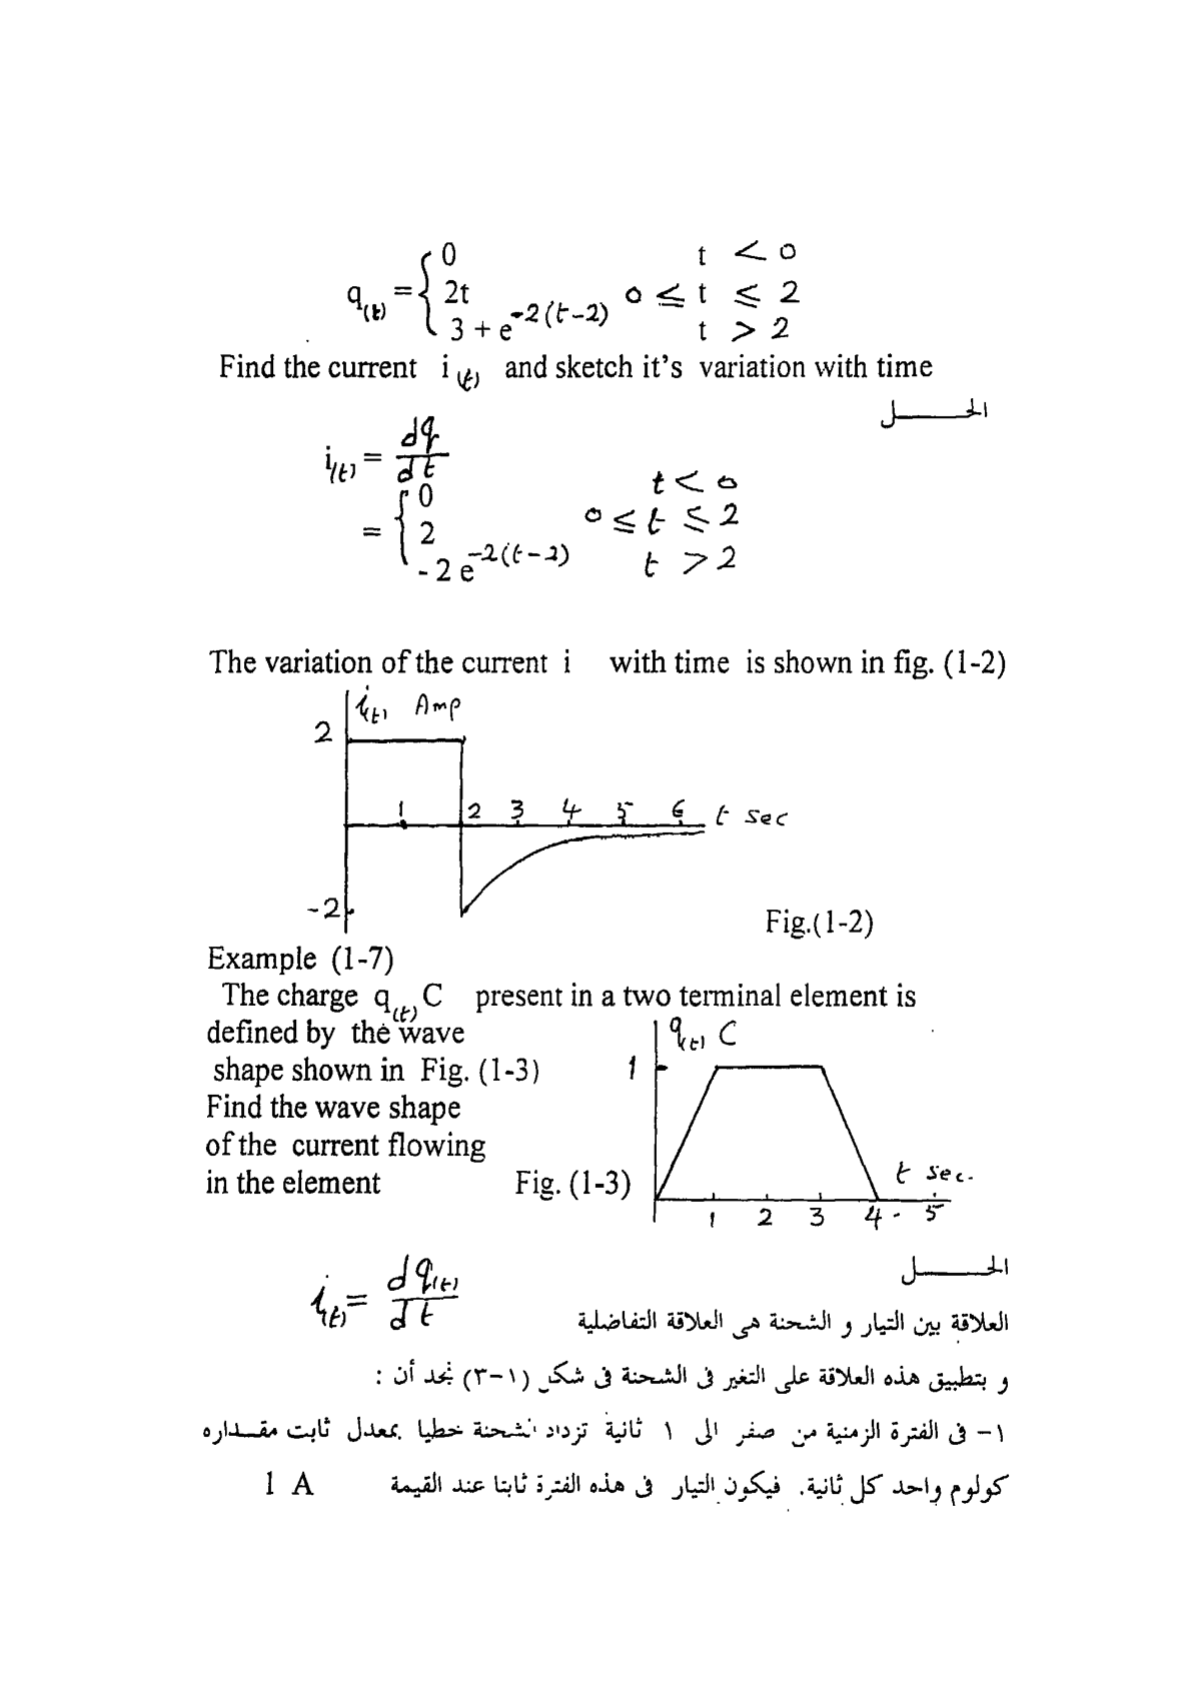 q(t) = { 0 t < 0
2t 0 ≤ t ≤ 2
3 + e^-2(t-2) t > 2
Find the current i (t) and sketch it's variation with time
الحـــــل
i(t) = dq/dt
= { 0 t < 0
2 0 ≤ t ≤ 2
- 2 e^-2(t-2) t > 2
The variation of the current i with time is shown in fig. (1-2)
i(t) Amp
2
1 2 3 4 5 6 t sec
-2
Fig.(1-2)
Example (1-7)
The charge q(t) C present in a two terminal element is
defined by the wave
q(t) C
shape shown in Fig. (1-3)
1
Find the wave shape
of the current flowing
in the element Fig. (1-3)
t sec.
1 2 3 4 - 5
الحـــــل
i(t) = dq(t)/dt
العلاقة بين التيار و الشحنة هى العلاقة التفاضلية
و بتطبيق هذه العلاقة على التغير فى الشحنة فى شكل (١-٣) نجد أن :
١- فى الفترة الزمنية من صفر الى ١ ثانية تزداد الشحنة خطيا بمعدل ثابت مقـــداره
كولوم واحد كل ثانية. فيكون التيار فى هذه الفترة ثابتا عند القيمة 1 A